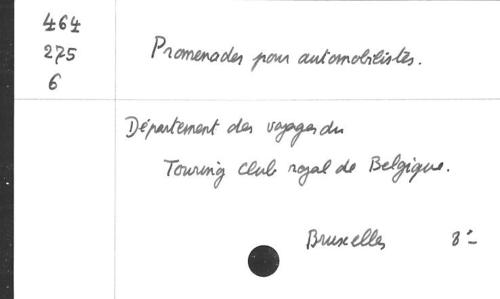 464
275
6
Promenades pour automobilistes.
Département des voyages du
Touring Club royal de Belgique.
Bruxelles 8º